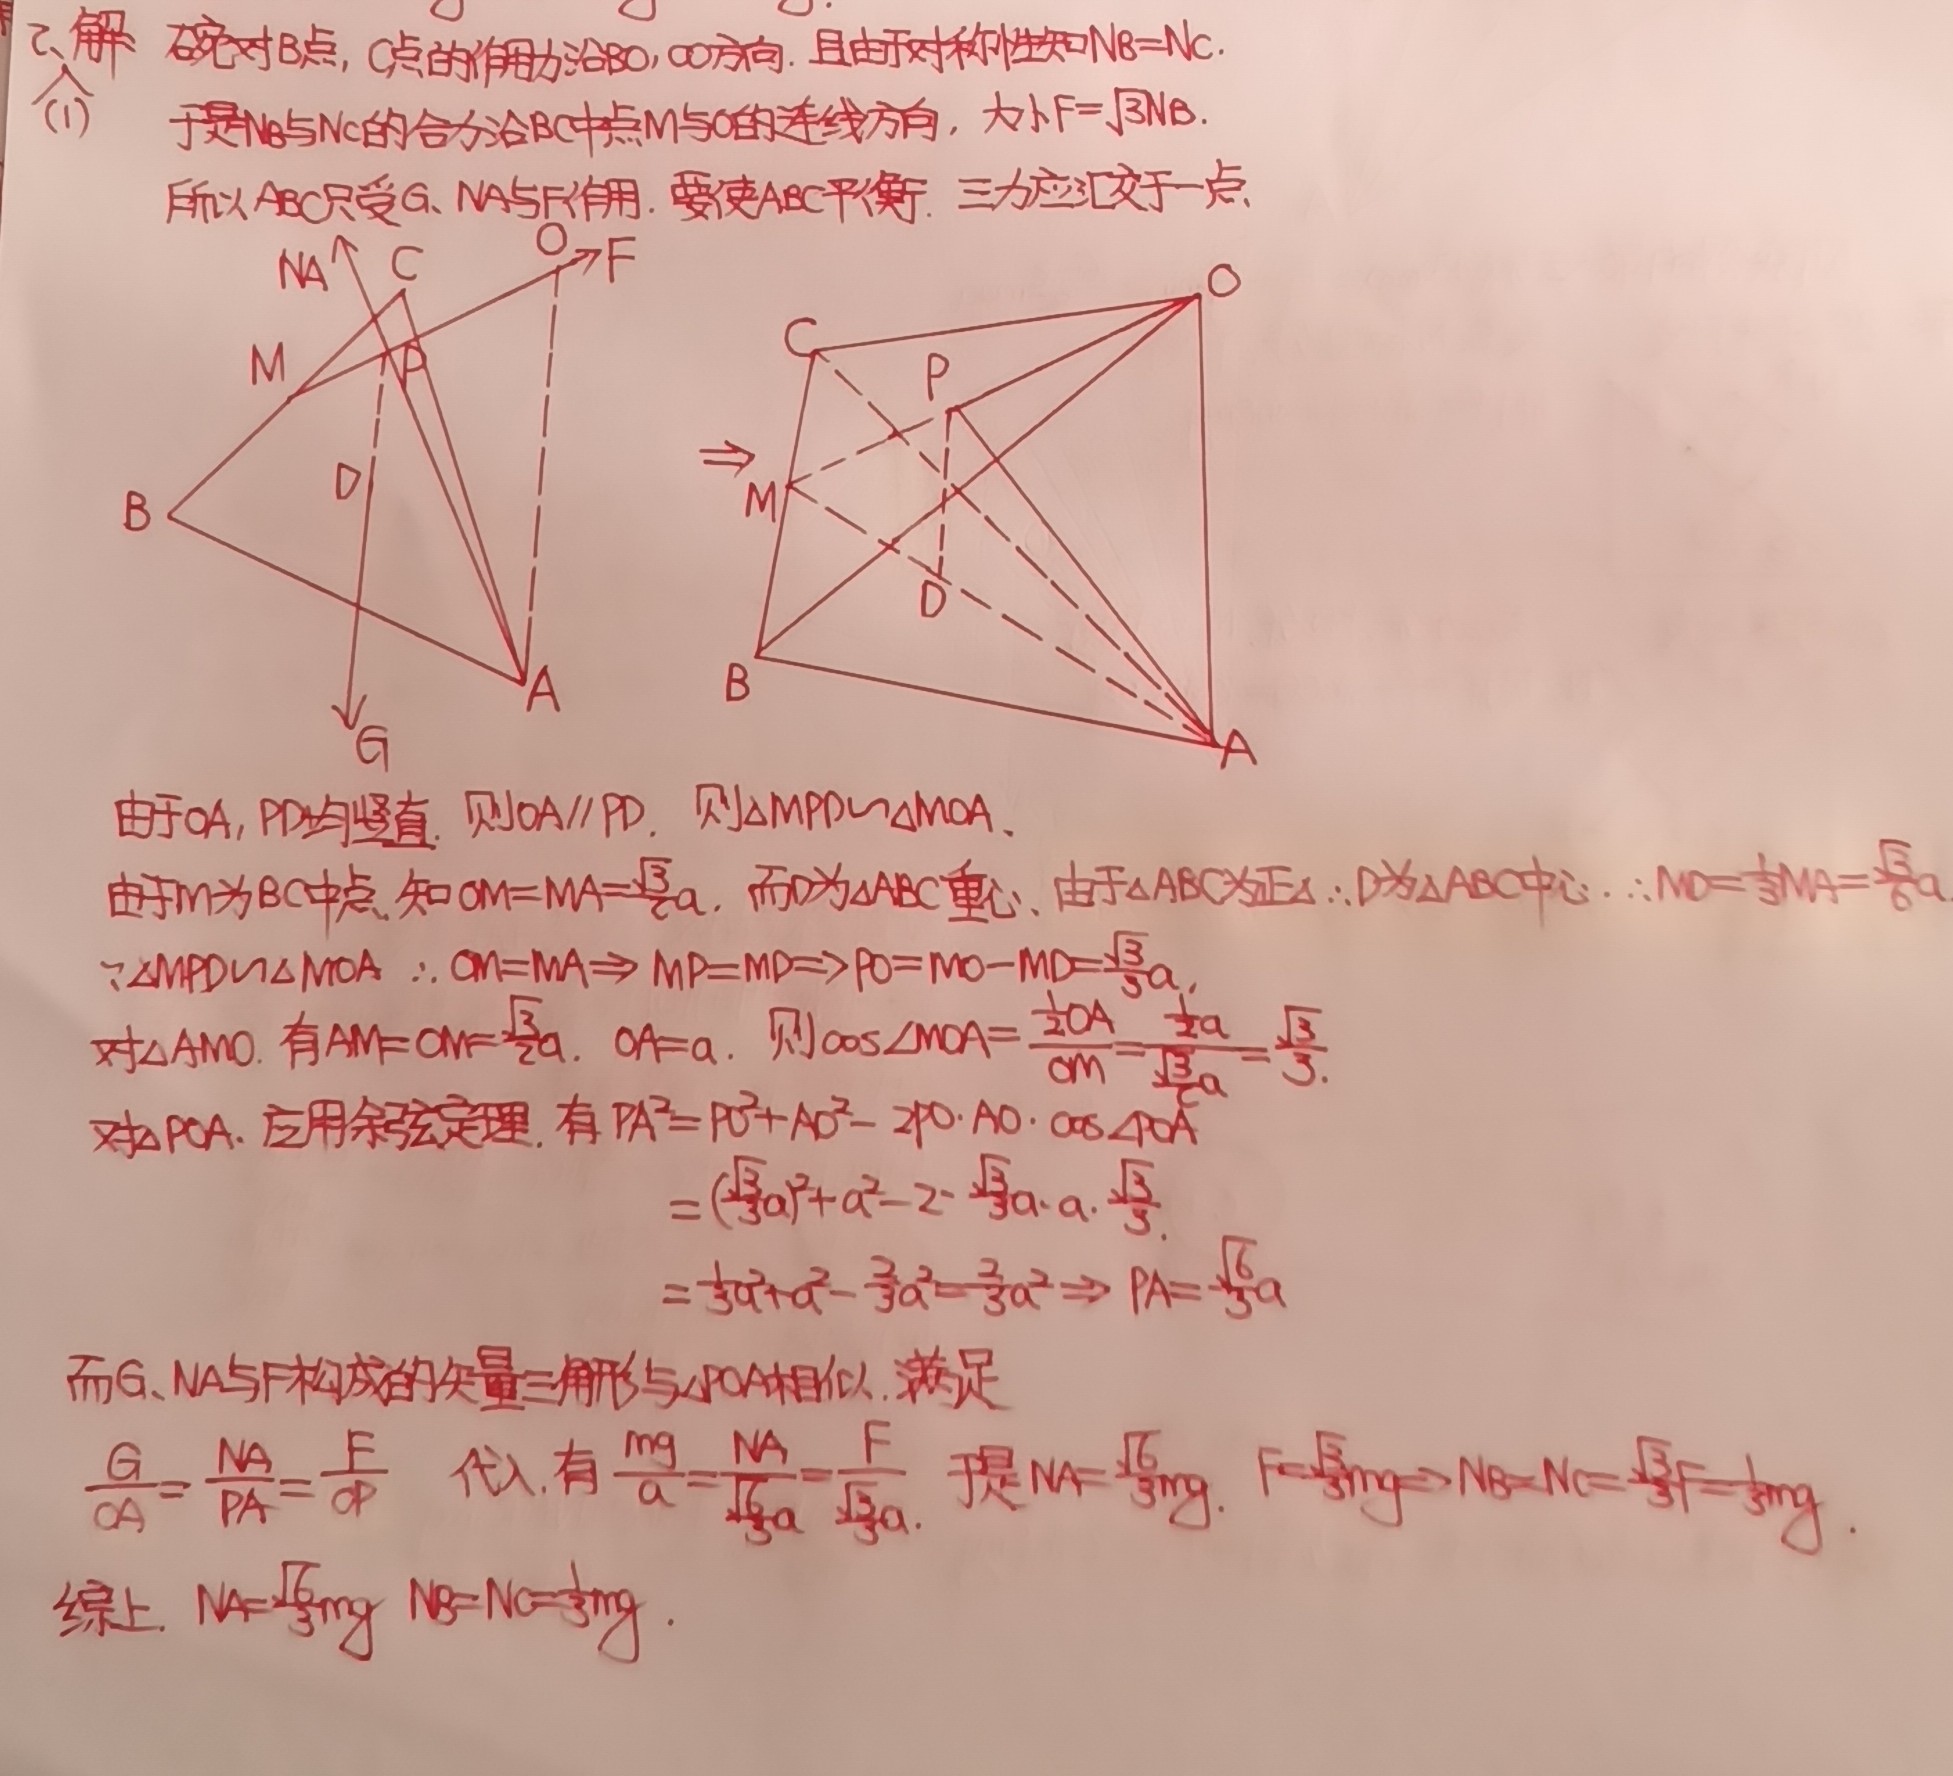 2、解 碗对B点，C点的作用力沿BO，CO方向．且由于对称性知NB=NC．
(1) 于是NB与NC的合力沿BC中点M与O的连线方向，大小F=√3NB．
所以ABC只受G、NA与F作用．要使ABC平衡．三力应汇交于一点、
NA C O F
M P
D
B
A
G
⇒
O
C
P
M
D
B
A
由于OA，PD均竖直．则OA∥PD．则△MPD∽△MOA、
由于M为BC中点、知OM=MA=√3/2a．而D为△ABC重心、由于△ABC为正△∴D为△ABC中心．∴MD=1/3MA=√3/6a．
∵△MPD∽△MOA ∴OM=MA⇒MP=MD⇒PO=MO-MD=√3/3a，
对△AMO．有AM=OM=√3/2a．OA=a．则cos∠MOA=(1/2OA)/OM=(1/2a)/(√3/2a)=√3/3．
对△POA．应用余弦定理．有PA²=PO²+AO²-2PO·AO·cos∠POA
=(√3/3a)²+a²-2·√3/3a·a·√3/3．
=1/3a²+a²-2/3a²=2/3a²⇒PA=√6/3a
而G、NA与F构成的矢量三角形与△POA相似．满足
G/OA=NA/PA=F/OP 代入．有mg/a=NA/(√6/3a)=F/(√3/3a)．于是NA=√6/3mg．F=√3/3mg⇒NB=NC=√3/3F=1/3mg．
综上．NA=√6/3mg NB=NC=1/3mg．